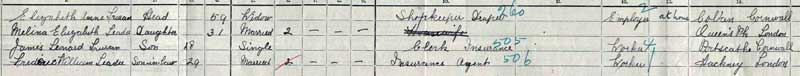 Elizabeth Anne Head 59 Widow Shopkeeper 260 Employer at home Cornwall
Melina Elizabeth Daughter 31 Married 2 – – – Housewife Queen's Pk London
James Leonard Son 18 Single Clerk Insurance 505 Worker Cornwall
Frederick William Son in law 29 Married Insurance Agent 506 Worker Hackney London